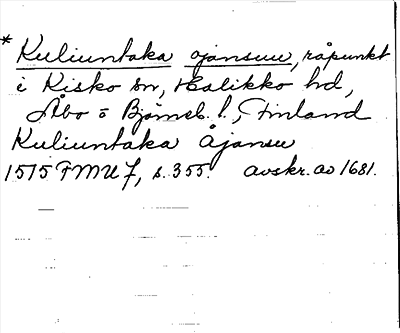 * Kuliuntaka ojansuu, råpunkt
i Kisko sn, Halikko hd,
Åbo o Björneb. l., Finland
Kuliuntaka Åjansu
1515 FMU 7, s. 355. avskr. av 1681.